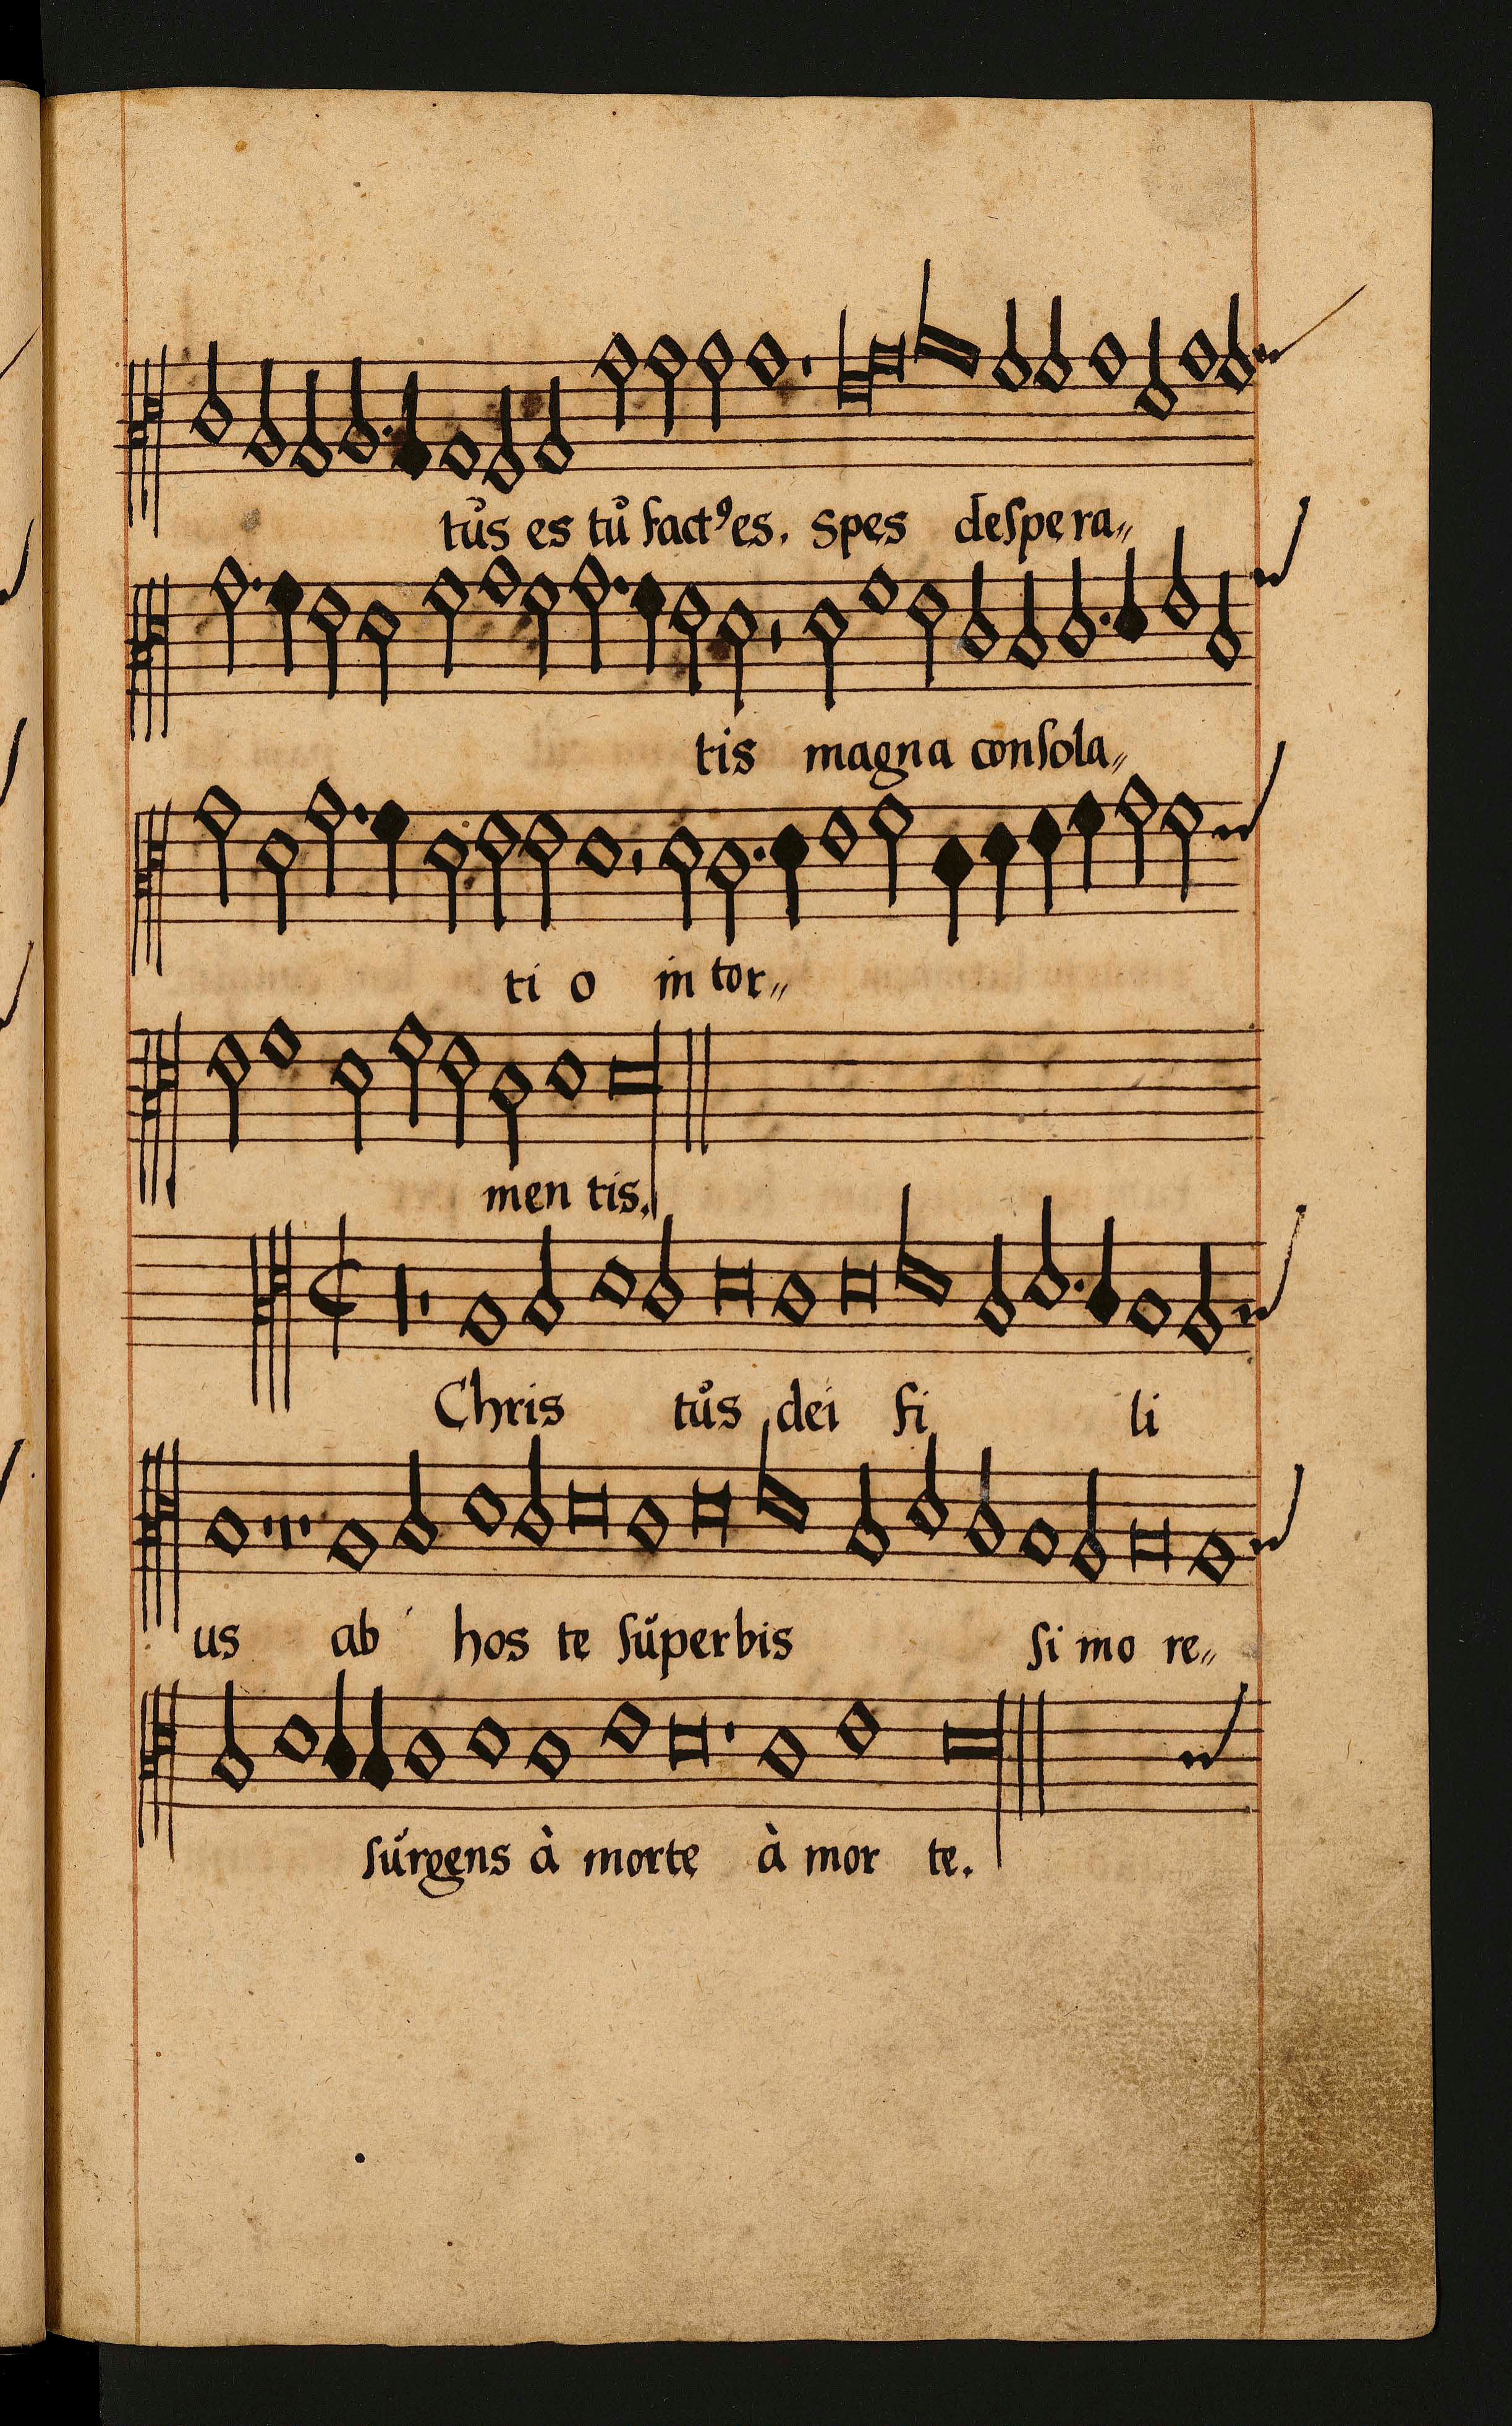 tůs es tů fact⁹ es. spes deſpera〃
tis magna conſola〃
ti o in tor〃
men tis.
Chris tůs dei fi li
us ab hos te ſůperbis ſi mo re〃
ſůrgens à morte à mor te.